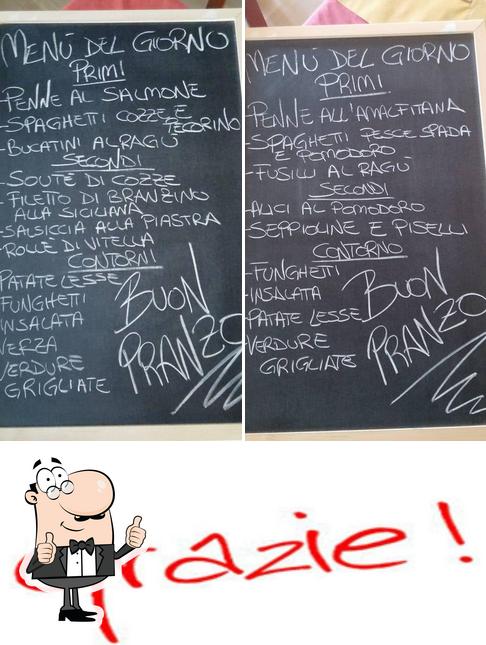 MENÙ DEL GIORNO
PRIMI
-PENNE AL SALMONE
-SPAGHETTI COZZE E
PECORINO
-BUCATINI AL RAGÙ
SECONDI
-SOUTÈ DI COZZE
-FILETTO DI BRANZINO
ALLA SICILIANA
-SALSICCIA ALLA PIASTRA
-ROLLÈ DI VITELLA
CONTORNI
PATATE LESSE
FUNGHETTI
INSALATA
VERZA
VERDURE
GRIGLIATE
BUON
PRANZO
MENÙ DEL GIORNO
PRIMI
-PENNE ALL'AMALFITANA
-SPAGHETTI PESCE SPADA
E POMODORO
-FUSILLI AL RAGÙ
SECONDI
-ALICI AL POMODORO
-SEPPIOLINE E PISELLI
CONTORNO
-FUNGHETTI
-INSALATA
-PATATE LESSE
-VERDURE
GRIGLIATE
BUON
PRANZO
grazie!